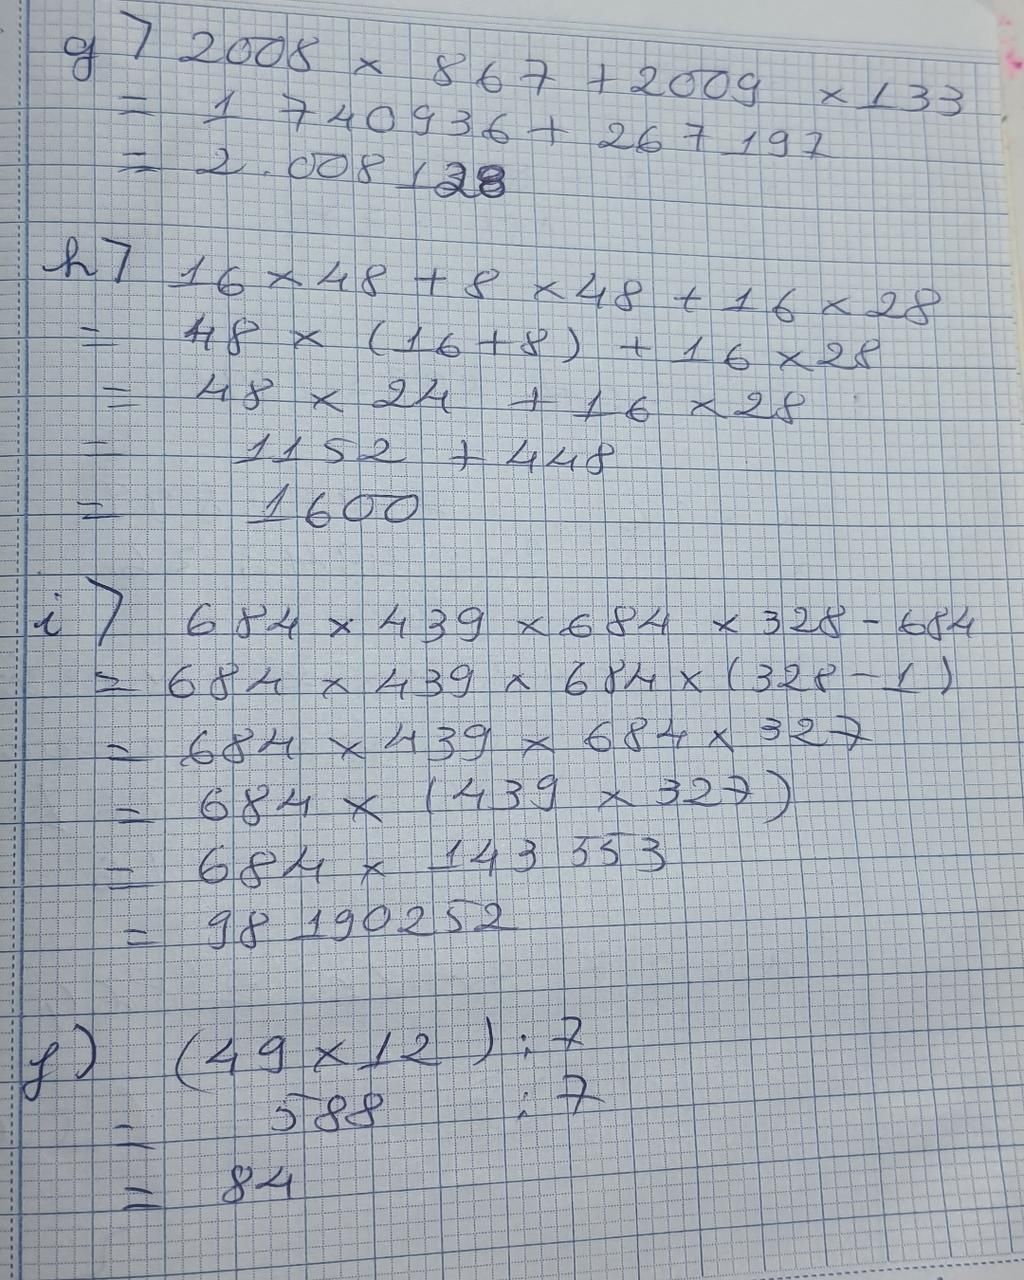 g) 2008 × 867 + 2009 × 133
= 1 740936 + 267 197
= 2.008 128
h) 16 × 48 + 8 × 48 + 16 × 28
= 48 × (16 + 8) + 16 × 28
= 48 × 24 + 16 × 28
= 1152 + 448
= 1600
i) 684 × 439 × 684 × 328 - 684
= 684 × 439 × 684 × (328 - 1)
= 684 × 439 × 684 × 327
= 684 × (439 × 327)
= 684 × 143 553
= 98 190252
j) (49 × 12) : 7
= 588 : 7
= 84